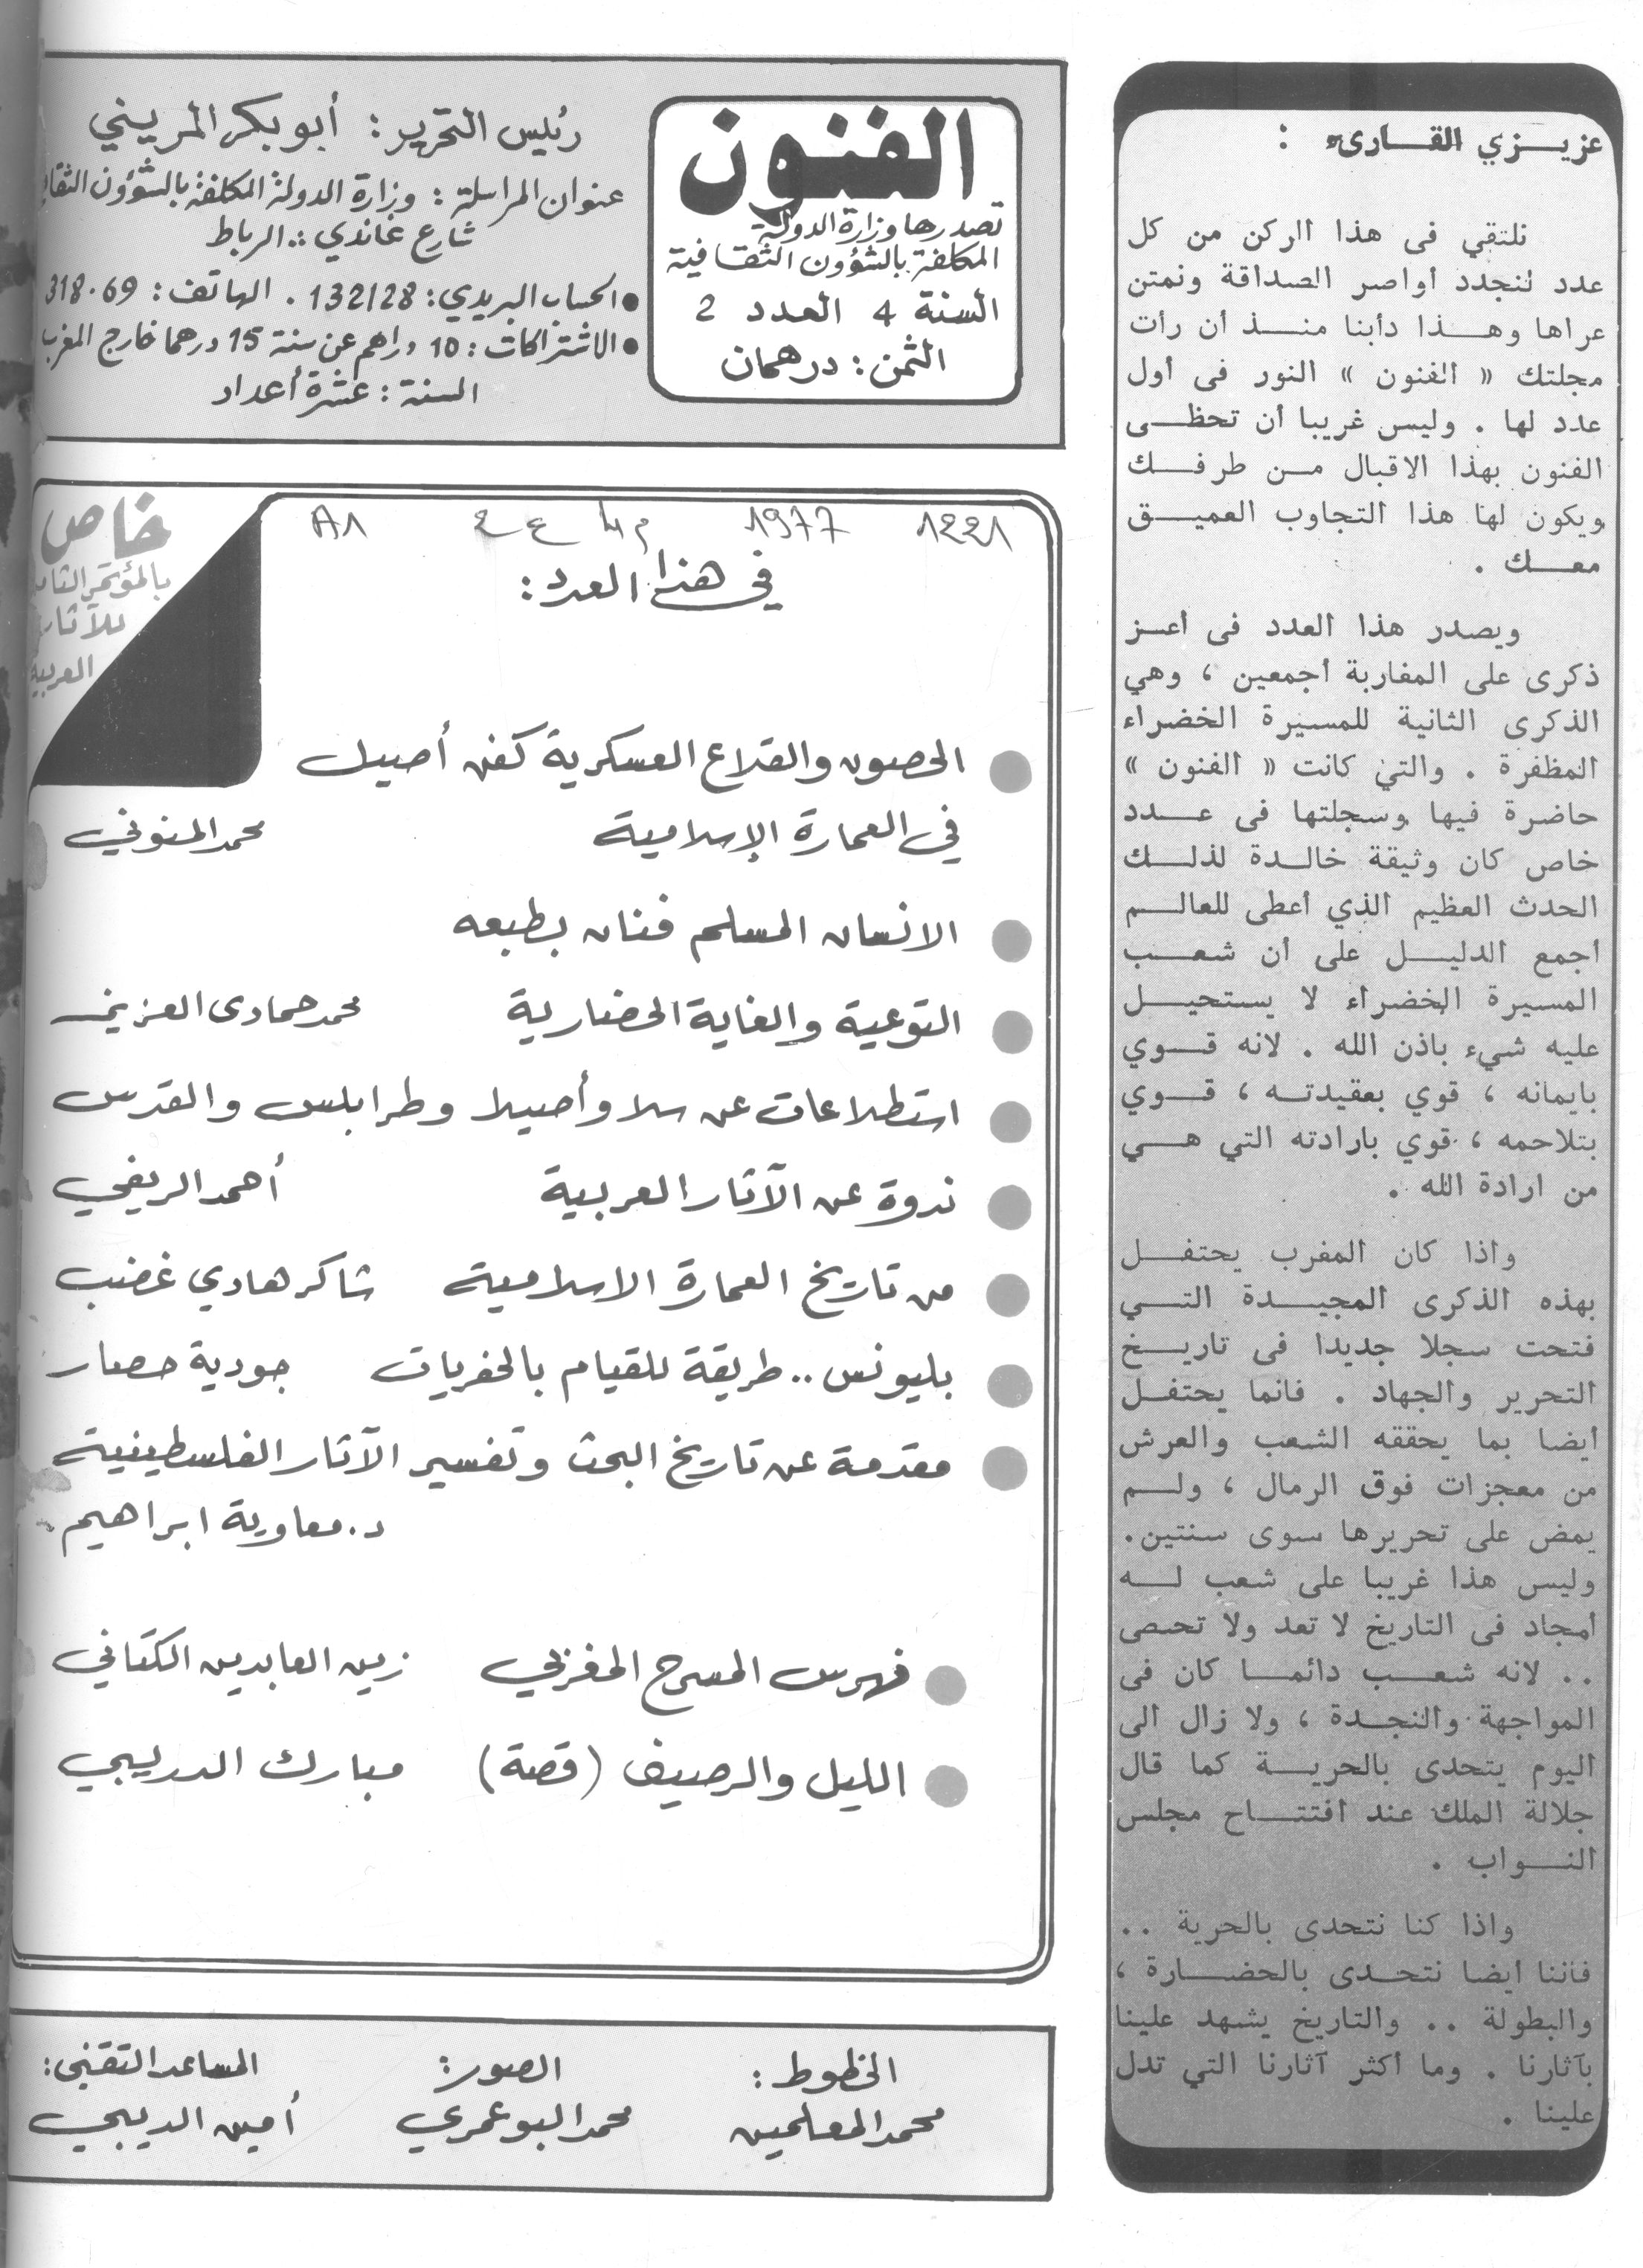 عزيزي القارىء :
نلتقي فى هذا الركن من كل
عدد لنجدد أواصر الصداقة ونمتن
عراها وهذا دأبنا منذ أن رأت
مجلتك « الفنون » النور فى أول
عدد لها . وليس غريبا أن تحظى
الفنون بهذا الاقبال من طرفك
ويكون لها هذا التجاوب العميق
معك .
ويصدر هذا العدد فى أعز
ذكرى على المغاربة أجمعين ، وهي
الذكرى الثانية للمسيرة الخضراء
المظفرة . والتي كانت « الفنون »
حاضرة فيها وسجلتها فى عدد
خاص كان وثيقة خالدة لذلك
الحدث العظيم الذي أعطى للعالم
أجمع الدليل على أن شعب
المسيرة الخضراء لا يستحيل
عليه شيء باذن الله . لانه قوي
بايمانه ، قوي بعقيدته ، قوي
بتلاحمه ، قوي بارادته التي هي
من ارادة الله .
واذا كان المغرب يحتفل
بهذه الذكرى المجيدة التي
فتحت سجلا جديدا فى تاريخ
التحرير والجهاد . فانما يحتفل
أيضا بما يحققه الشعب والعرش
من معجزات فوق الرمال ، ولم
يمض على تحريرها سوى سنتين.
وليس هذا غريبا على شعب له
أمجاد فى التاريخ لا تعد ولا تحصى
.. لانه شعب دائما كان فى
المواجهة والنجدة ، ولا زال الى
اليوم يتحدى بالحرية كما قال
جلالة الملك عند افتتاح مجلس
النواب .
واذا كنا نتحدى بالحرية ..
فاننا أيضا نتحدى بالحضارة ،
والبطولة .. والتاريخ يشهد علينا
بآثارنا . وما أكثر آثارنا التي تدل
علينا .
الفنون
تصدرها وزارة الدولة
المكلفة بالشؤون الثقافية
السنة 4 العدد 2
الثمن : درهمان
رئيس التحرير : أبو بكر المريني
عنوان المراسلة : وزارة الدولة المكلفة بالشؤون
شارع غاندي .. الرباط
• الحساب البريدي : 132128 . الهاتف : 318.69
• الاشتراكات : 10 دراهم عن سنة 15 درهما خارج المغرب
السنة : عشرة أعداد
خاص
بالمؤتمر
للآثار
العربية
1221 1977 A1
في هذا العدد :
الحصون والقلاع العسكرية كفن أصيل
في العمارة الإسلامية محمد المنوني
الانسان المسلم فنان بطبعه
التوعية والغاية الحضارية محمد حمادى العزيز
استطلاعات عن سلا وأصيلا وطرابلس والقدس
ندوة عن الآثار العربية أحمد الريفي
من تاريخ العمارة الاسلامية شاكر هادي غضب
بليونس .. طريقة للقيام بالحفريات جودية حصار
مقدمة عن تاريخ البحث وتفسير الآثار الفلسطينية
د. معاوية ابراهيم
فهرس المسرح المغربي زين العابدين الكتاني
الليل والرصيف (قصة) مبارك الدريبي
الخطوط : الصور : المساعد التقني :
محمد المعلمين محمد البوعمري أمين الديبي